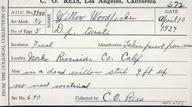 C. O. REIS, Los Angeles, California
572
A.O.U. No. 396
Willow Woodpecker
April 10
Set Mark
1927
No. of Eggs 5
D. p. turati
Incubation Fresh
Identification Taken parent from nest
Locality Riverside Co. Calif.
Nest in a dead willow stub 9 ft up
no nest material
Set No. 690
Collected by C. O. Reis
FROM THE OOLOGICAL COLLECTION OF